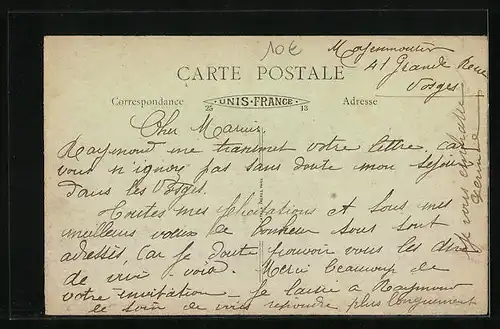 10€
Moyenmoutier
41 Grande Rue
Vosges
CARTE POSTALE
Correspondance
25 UNIS-FRANCE 13
Adresse
Cher Marius,
Raymond me transmet votre lettre, car
vous n'ignorez pas sans doute mon séjour
dans les Vosges.
Toutes mes félicitations et tous mes
meilleurs vœux de bonheur vous sont
adressés, car je doute pouvoir vous les dire
de vive-voix. Merci beaucoup de
votre invitation - Je laisse à Raymond
le soin de vous répondre plus longuement
Je vous embrasse